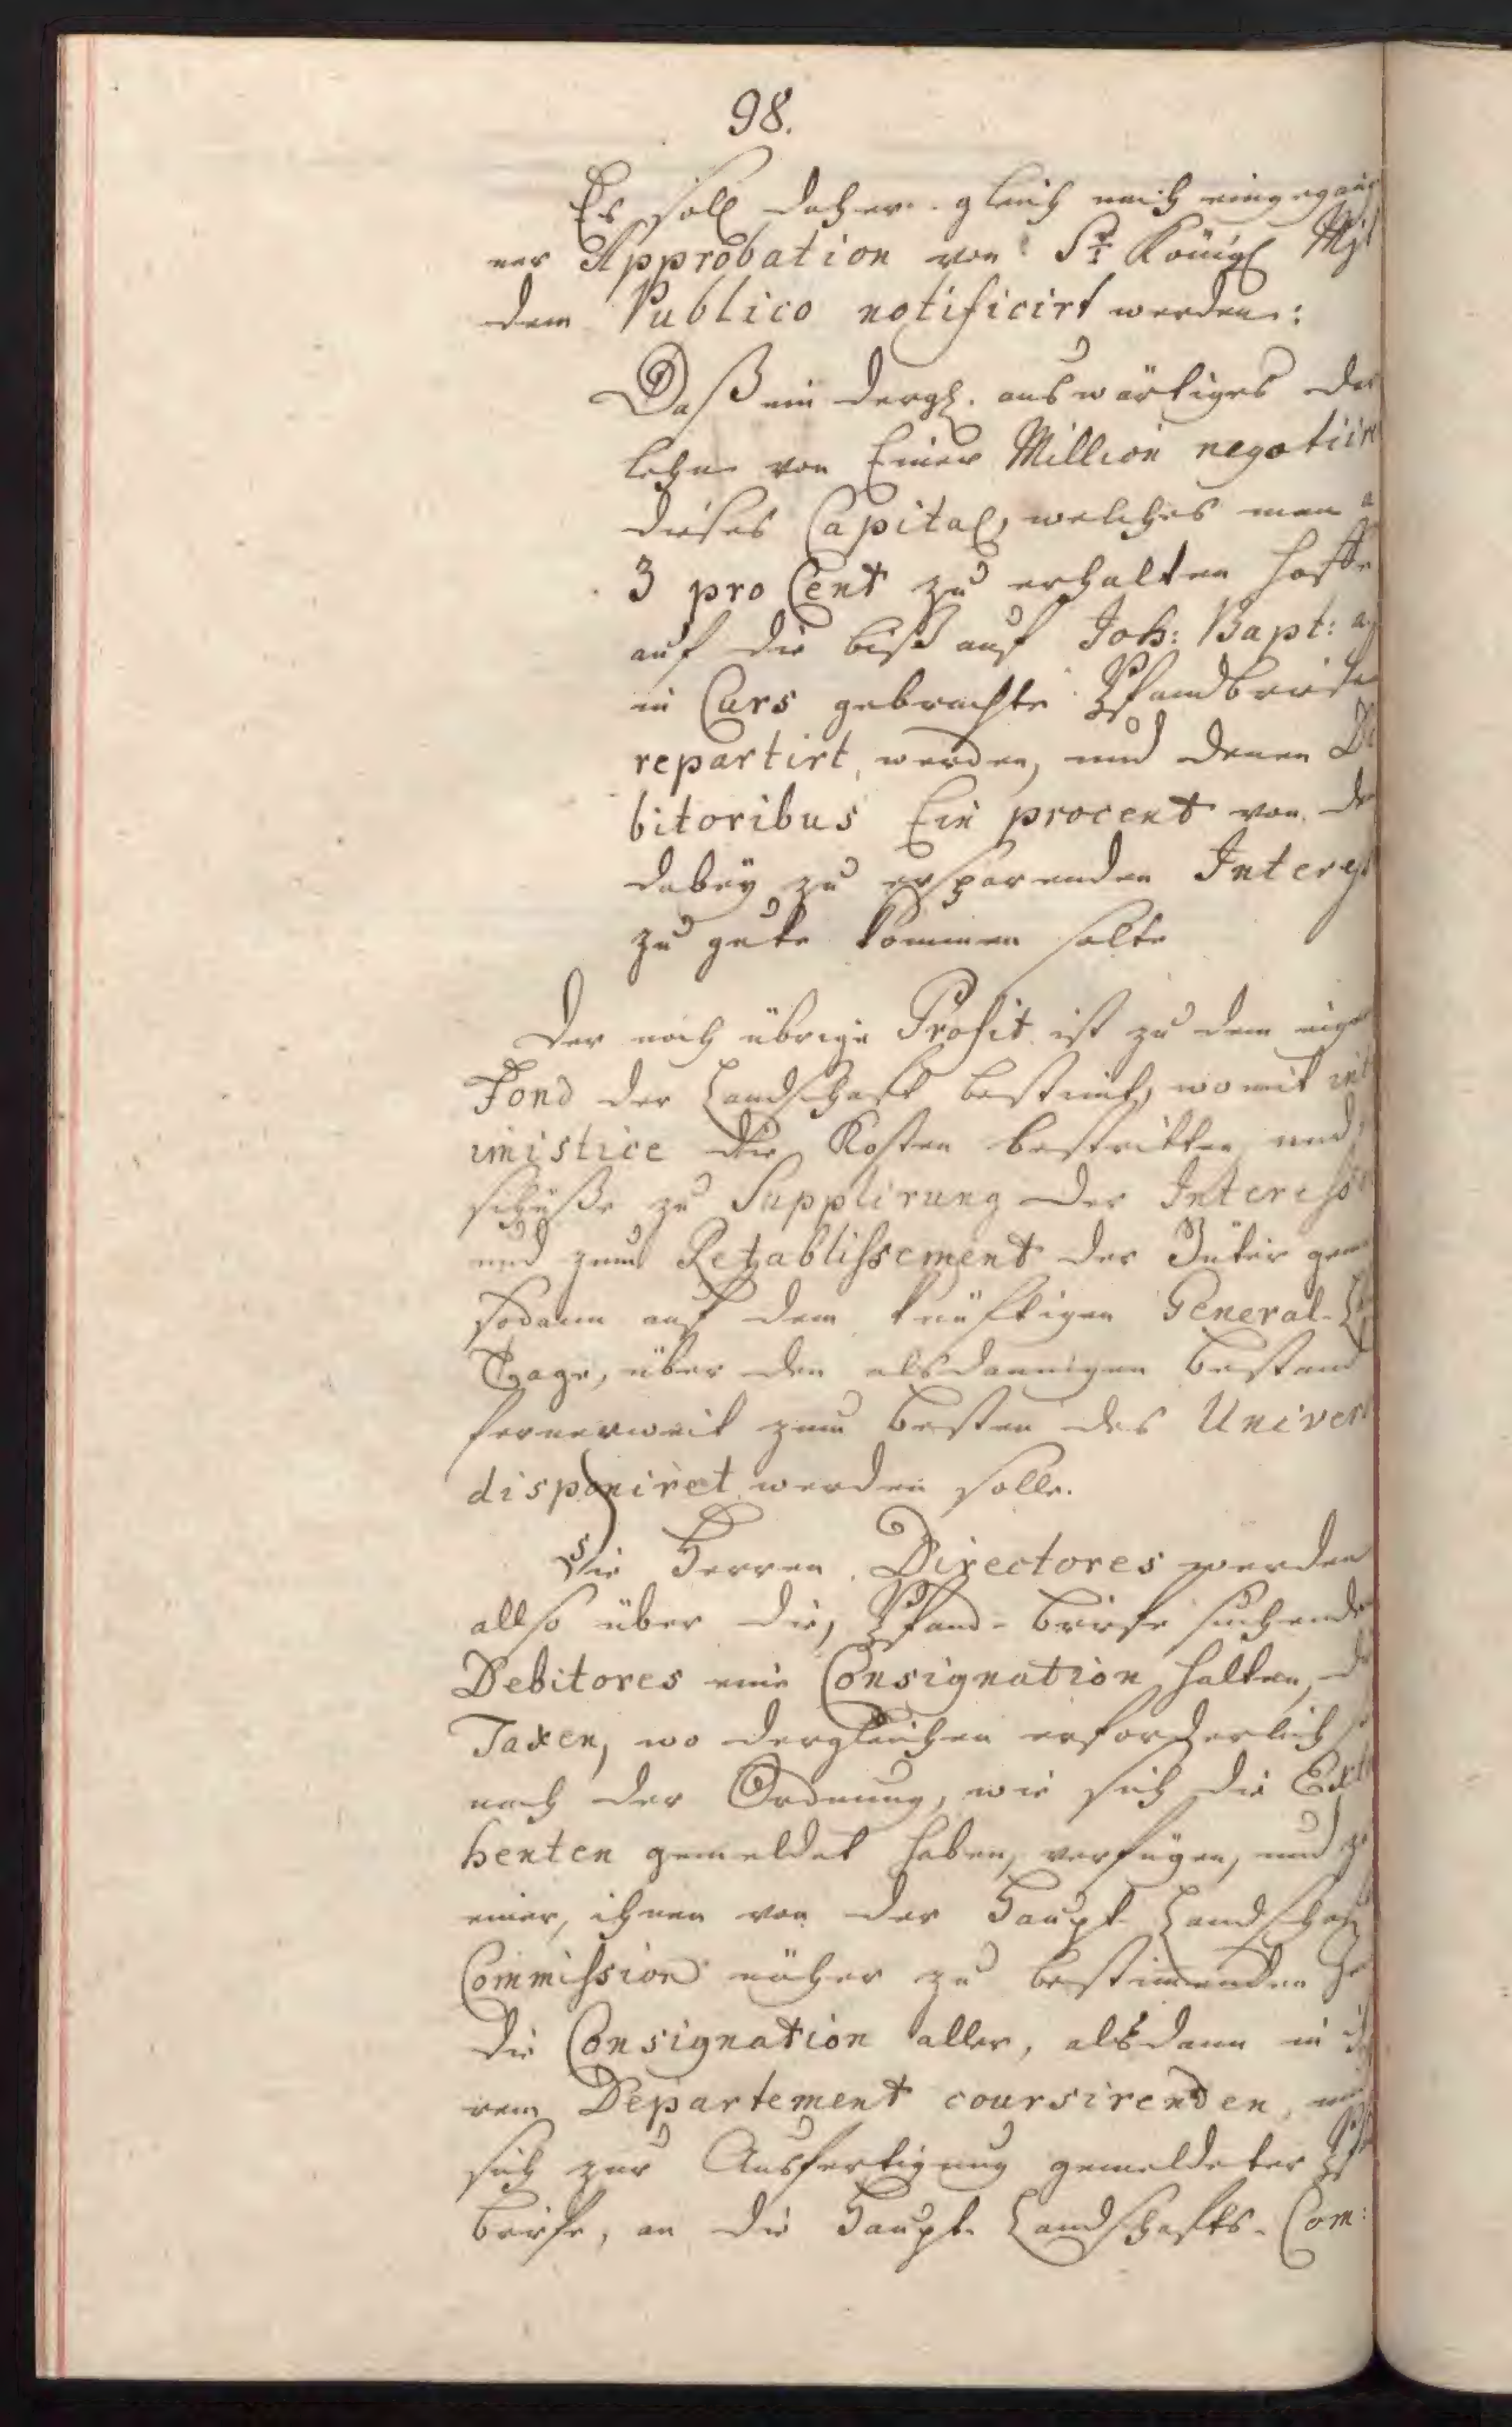 98.
Es soll daher gleich nach eingegang
ner Approbation von Sr. Königl Mjt
dem Publico notificirt werden:
Daß ein dergl. auswärtiges Dar
lehn von Einer Million negotiirt
dieses Capital, welches man a
3 pro Cent zu erhalten hoffe
auf die biß auf Joh: Bapt: a.
in Cars gebrachte Pfandbriefe
repartirt, werden, und denen De
bitoribus Ein procent von de
dabey zu ersparenden Interess
zu gute kommen solte
Der noch übrige Profit ist zu dem eige
Fond der Landschaft bestimt, womit int
imistice die Kosten bestritten und
schüße zu Supplirung der Interesse
und zum Retablissement der Güter gem
sodann auf dem künftigen General-L
Tage, über den alsdannigen Bestand
fernerweit zum Besten des Univers
disponiret werden solle.
Die Herren Directores werden
allso über die, Pfand-Briefe suchende
Debitores eine Consignation halten, d
Taxen, wo dergleichen erforderlich s
nach der Ordnung, wie sich die Extra
henten gemeldet haben, verfügen, und zu
einer, ihnen von der Haupt-Landschaft
Commission näher zu bestimenden Zeit
die Consignation aller, alsdann in ih
rem Departement coursirenden, und
sich zur Ausfertigung gemeldeter Pf
Briefe, an die Haupt-Landschafts-Com: